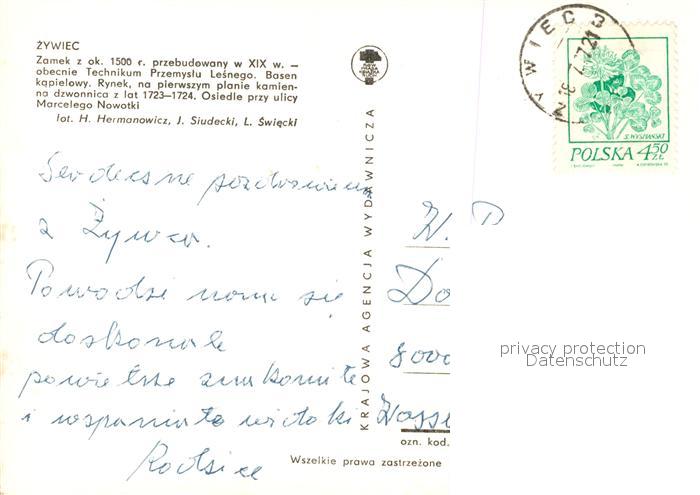 ŻYWIEC
Zamek z ok. 1500 r. przebudowany w XIX w. —
obecnie Technikum Przemysłu Leśnego. Basen
kąpielowy. Rynek, na pierwszym planie kamien-
na dzwonnica z lat 1723—1724. Osiedle przy ulicy
Marcelego Nowotki
fot. H. Hermanowicz, J. Siudecki, L. Święcki
Serdeczne pozdrowienia
z Żywca.
Powodzi nam się
doskonale
powietrze znakomite
i wspaniałe widoki
Rodzice
KRAJOWA AGENCJA WYDAWNICZA
ŻYWIEC 3
S. WYSPIAŃSKI
POLSKA 4,50 ZŁ
W. P.
Do
8000
ozn. kod.
Wszelkie prawa zastrzeżone
privacy protection
Datenschutz